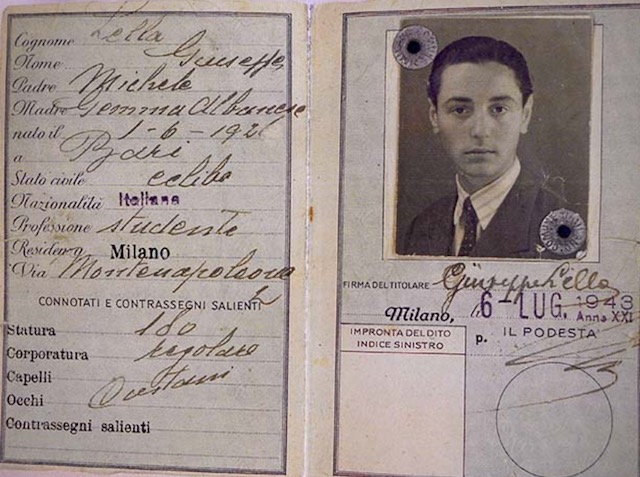 Cognome Lella
Nome Giuseppe
Padre Michele
Madre Gemma Albanese
nato il 1-6-192
a Bari
Stato civile celibe
Nazionalità Italiana
Professione studente
Residenza Milano
Via Montenapoleone 2
CONNOTATI E CONTRASSEGNI SALIENTI
Statura 180
Corporatura regolare
Capelli Castani
Occhi
Contrassegni salienti
FIRMA DEL TITOLARE Giuseppe Lella
Milano, 6-LUG. 1943
Anno XXI
p. IL PODESTÀ
IMPRONTA DEL DITO
INDICE SINISTRO